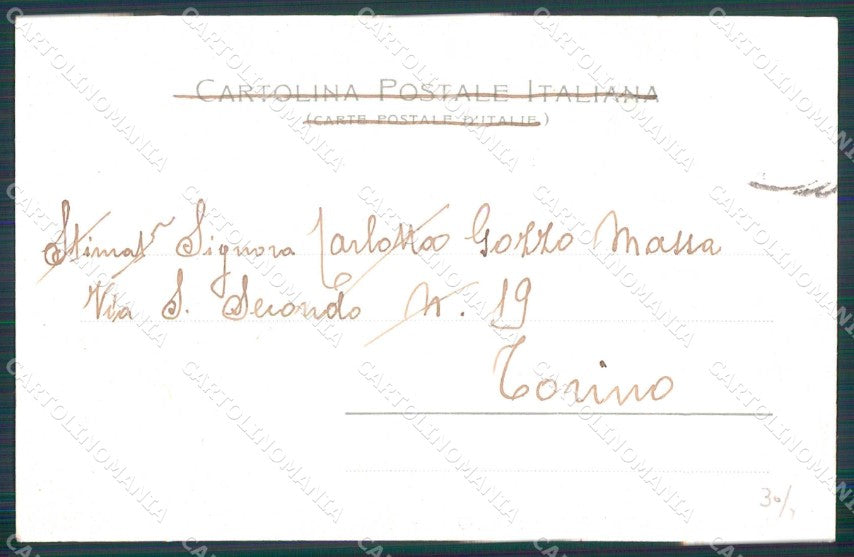 CARTOLINA POSTALE ITALIANA
(CARTE POSTALE D'ITALIE)
Stimatᵃ Signora Carlotta Gozzo Massa
Via S. Secondo N. 19
Torino
30/
CARTOLINOMANIA